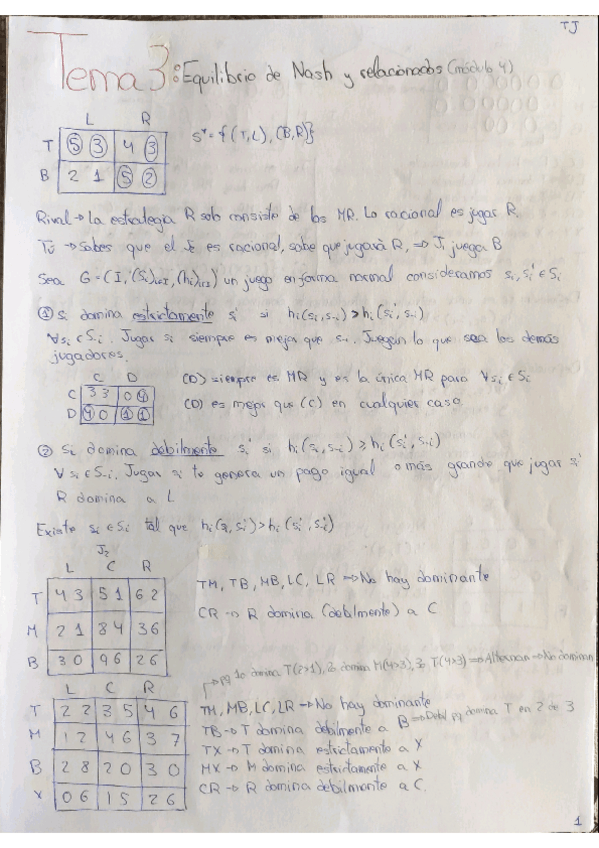 TJ
Tema 3: Equilibrio de Nash y relacionados (módulo 4)
L R
T 5 3 4 3 S* = {(T,L), (B,R)}
B 2 1 5 2
Rival → la estrategia R solo consiste de los MR. Lo racional es jugar R.
Tú → Sabes que el J2 es racional, sabe que jugará R, ⇒ J1 juega B
Sea G = (I, (Si)i∈I, (hi)i∈I) un juego en forma normal consideramos si, si' ∈ Si
① Si domina estrictamente si' si hi(si, s-i) > hi(si', s-i)
∀s-i ∈ S-i. Jugar si siempre es mejor que si. Jueguen lo que sea los demás
jugadores.
C D
C 3 3 0 4 (D) siempre es MR y es la única MR para ∀si ∈ Si
D 4 0 1 1 (D) es mejor que (C) en cualquier caso.
② Si domina debilmente si' si hi(si, s-i) ≥ hi(si', s-i)
∀ s-i ∈ S-i. Jugar si te genera un pago igual o más grande que jugar si'
R domina a L
Existe si ∈ Si tal que > hi(si', s-i)
J2
L C R
T 4 3 5 1 6 2 TM, TB, MB, LC, LR → No hay dominante
M 2 1 8 4 3 6 CR → R domina (debilmente) a C
B 3 0 9 6 2 6
pq 1o domina T(2>1), 2o domina M(4>3), 3o T(4>3) ⇒ Alternan ⇒ No dominan
L C R
T 2 2 3 5 4 6 TM, MB, LC, LR → No hay dominante
TB → T domina debilmente a B ⇒ Debil pq domina T en 2 de 3
M 1 2 4 6 3 7 TX → T domina estrictamente a X
B 2 8 2 0 3 0 MX → M domina estrictamente a X
X 0 6 1 5 2 6 CR → R domina debilmente a C.
1